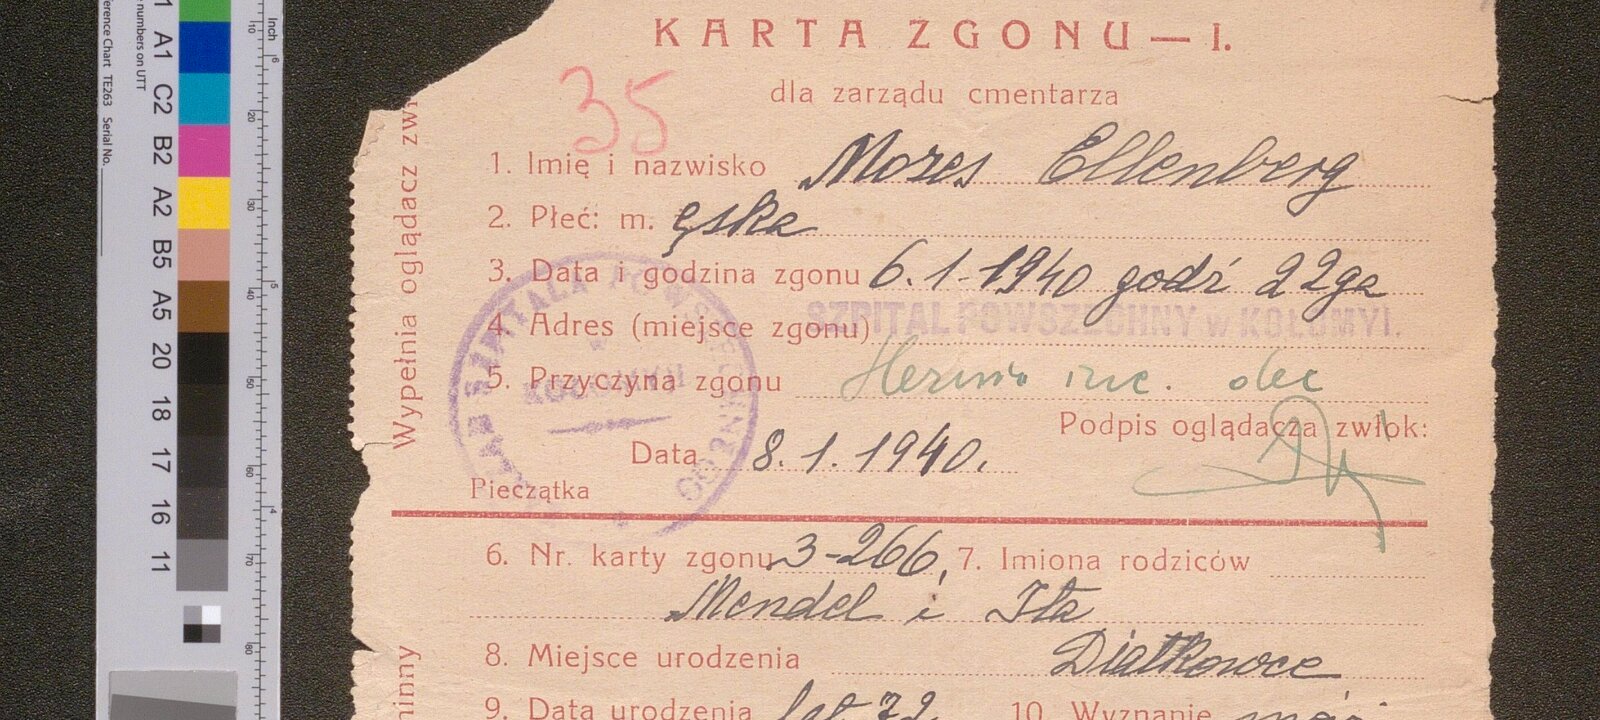 KARTA ZGONU — I.
35
dla zarządu cmentarza
1. Imię i nazwisko Mozes Ellenberg
2. Płeć: m. ęska
3. Data i godzina zgonu 6.1-1940 godź 22ga
4. Adres (miejsce zgonu) SZPITAL POWSZECHNY w KOŁOMYI.
5. Przyczyna zgonu Hernia inc.
Podpis oglądacza zwłok:
Data 8.1.1940.
Pieczątka
6. Nr. karty zgonu 3-266, 7. Imiona rodziców
Mendel i Ita
8. Miejsce urodzenia Diatkowce
9. Data urodzenia lat 72 10. Wyznanie mojż
Wypełnia oglądacz
SZPITALA POWSZECHNEGO
w
KOŁOMYI
Inch
10
20
30
40
50
60
70
80
6
5
4
A1
C2
B2
A2
B5
A5
20
18
17
16
11
erence Chart TE263 Serial No.
numbers on UTT